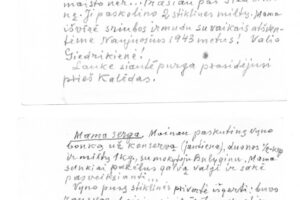 maisto nėr... Prašiau pas Giedrie-
nę. Ji paskolino 2 stiklines miltų. Mama
išvirė sriubos ir mudu su vaikais atšven-
tėme Naujuosius 1943 metus! Valio
Giedrikienė!
Lauke siautė pūga prasidėjusi
prieš Kalėdas.
Mama serga. Mainau paskutinę vyno
bonką už konservą (jautiena), duonos ½ kp
ir miltų 1 kg, su mokytoju Bulyginu. Mama
sunkiai pakėlus galvą valgė ir sakė
pasveiksianti...
Vyno puse stiklinės privertė išgerti. buvo